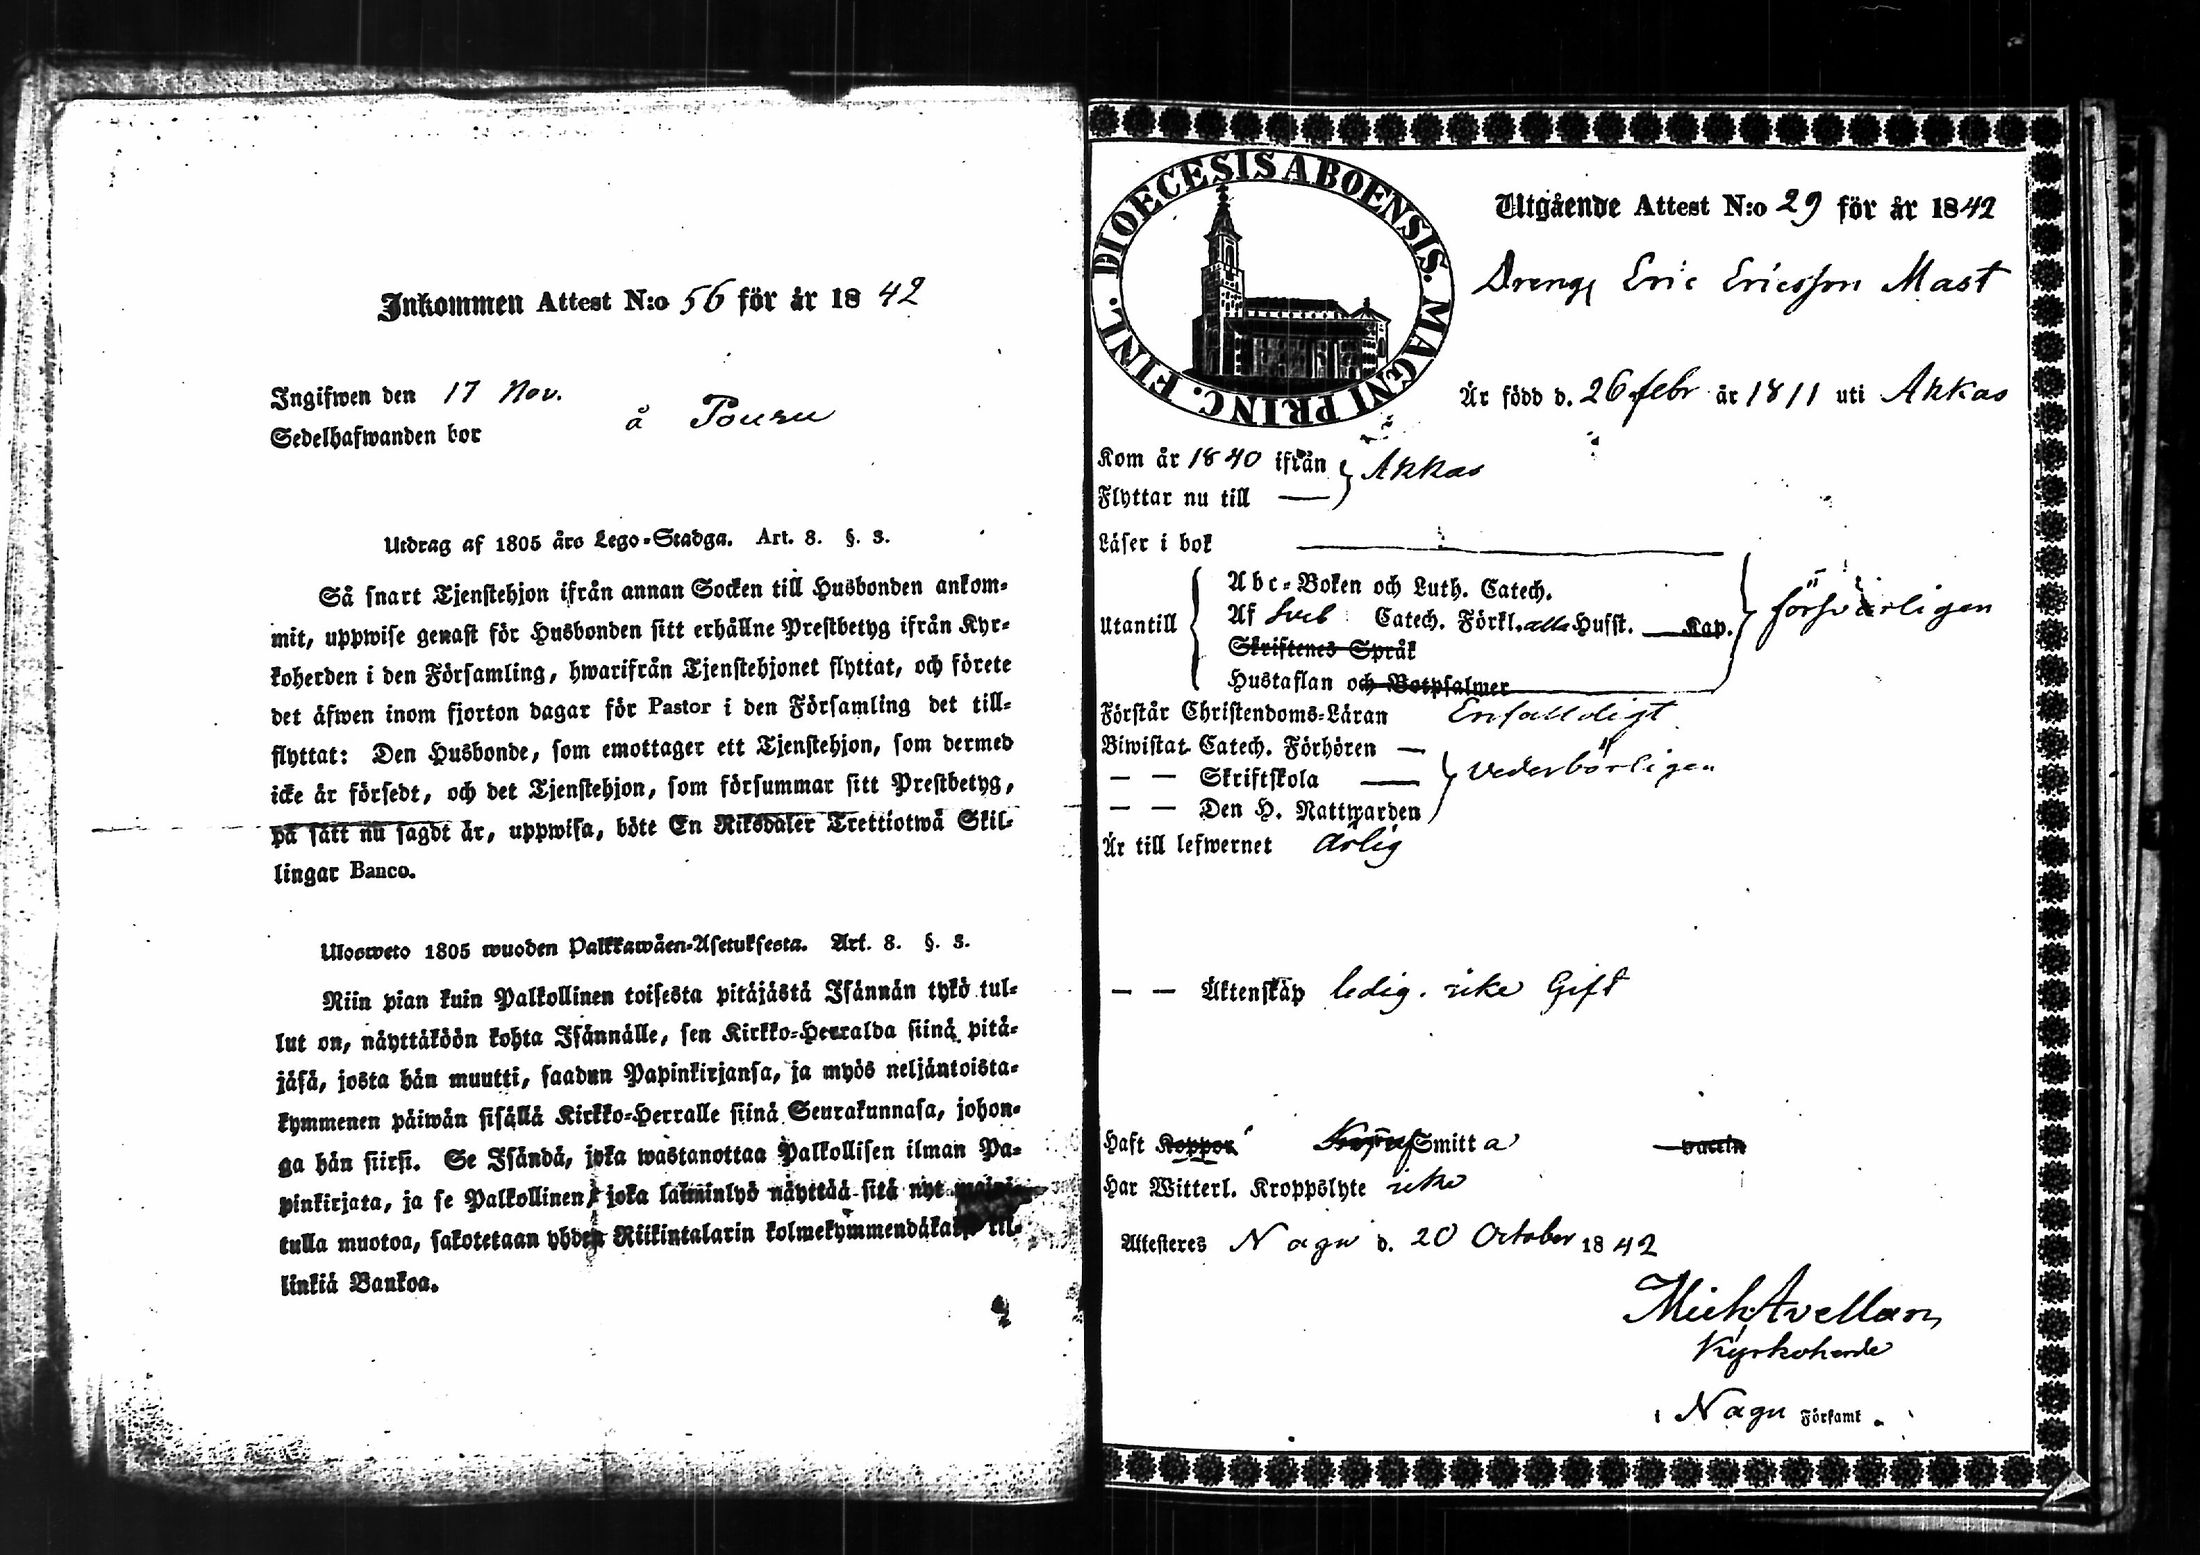 Inkommen Attest N:o 56 för år 1842
Ingifwen den 17 Nov.
Sedelhafwanden bor å Pouru
Utdrag af 1805 års Lego-Stadga. Art. 8. §. 3.
Så snart Tjenstehjon ifrån annan Socken till Husbonden ankom-
mit, uppwise genast för Husbonden sitt erhållne Prestbetyg ifrån Kyr-
koherden i den Församling, hwarifrån Tjenstehjonet flyttat, och förete
det äfwen inom fjorton dagar för Pastor i den Församling det till-
flyttat: Den Husbonde, som emottager ett Tjenstehjon, som dermed
icke är försedt, och det Tjenstehjon, som försummar sitt Prestbetyg,
på sätt nu sagdt är, uppwisa, böte En Riksdaler Trettiotwå Skil-
lingar Banco.
Ulosweto 1805 wuoden Palkkawäen-Asetuksesta. Art. 8. §. 3.
Niin pian kuin Palkollinen toisesta pitäjästä Isännän tykö tul-
lut on, näyttäköön kohta Isännälle, sen Kirkko-Herralda siinä pitä-
jäsä, josta hän muutti, saadun Papinkirjansa, ja myös neljäntoista-
kymmenen päiwän sisällä Kirkko-Herralle siinä Seurakunnasa, johon-
ga hän siirsi. Se Isändä, joka wastanottaa Palkollisen ilman Pa-
pinkirjata, ja se Palkollinen, joka laiminlyö näyttää sitä nyt
tulla muotoa, sakotetaan yhden Riikintalarin kolmekymmendäkaksi kil-
linkiä Bankoa.
DIOECESIS ABOENSIS. MAGNI PRINC. FINL.
Utgående Attest N:o 29 för år 1842
Dreng Eric Ericsson Mast
Är född d. 26 febr år 1811 uti Akkas
Kom år 1840 ifrån } Akkas
Flyttar nu till
Läser i bok
Abc-Boken och Luth. Catech.
Utantill Af Catech. Förkl. alla Husst. Kap. försvarligen
Skriftenes Språk
Hustaflan och Botpsalmer
Förstår Christendoms-Läran Enfalldigt
Biwistat Catech. Förhören —
— — Skriftskola — } vederbörligen
— — Den H. Nattwarden
Är till lefwernet ärlig
— — Äktenskap ledig. icke Gift
Haft Koppor Smitta vaccin
Har Witterl. Kroppslyte icke
Attesteres Nagu d. 20 October 1842
Mich Avellan
Kyrkoherde
i Nagu Församl.